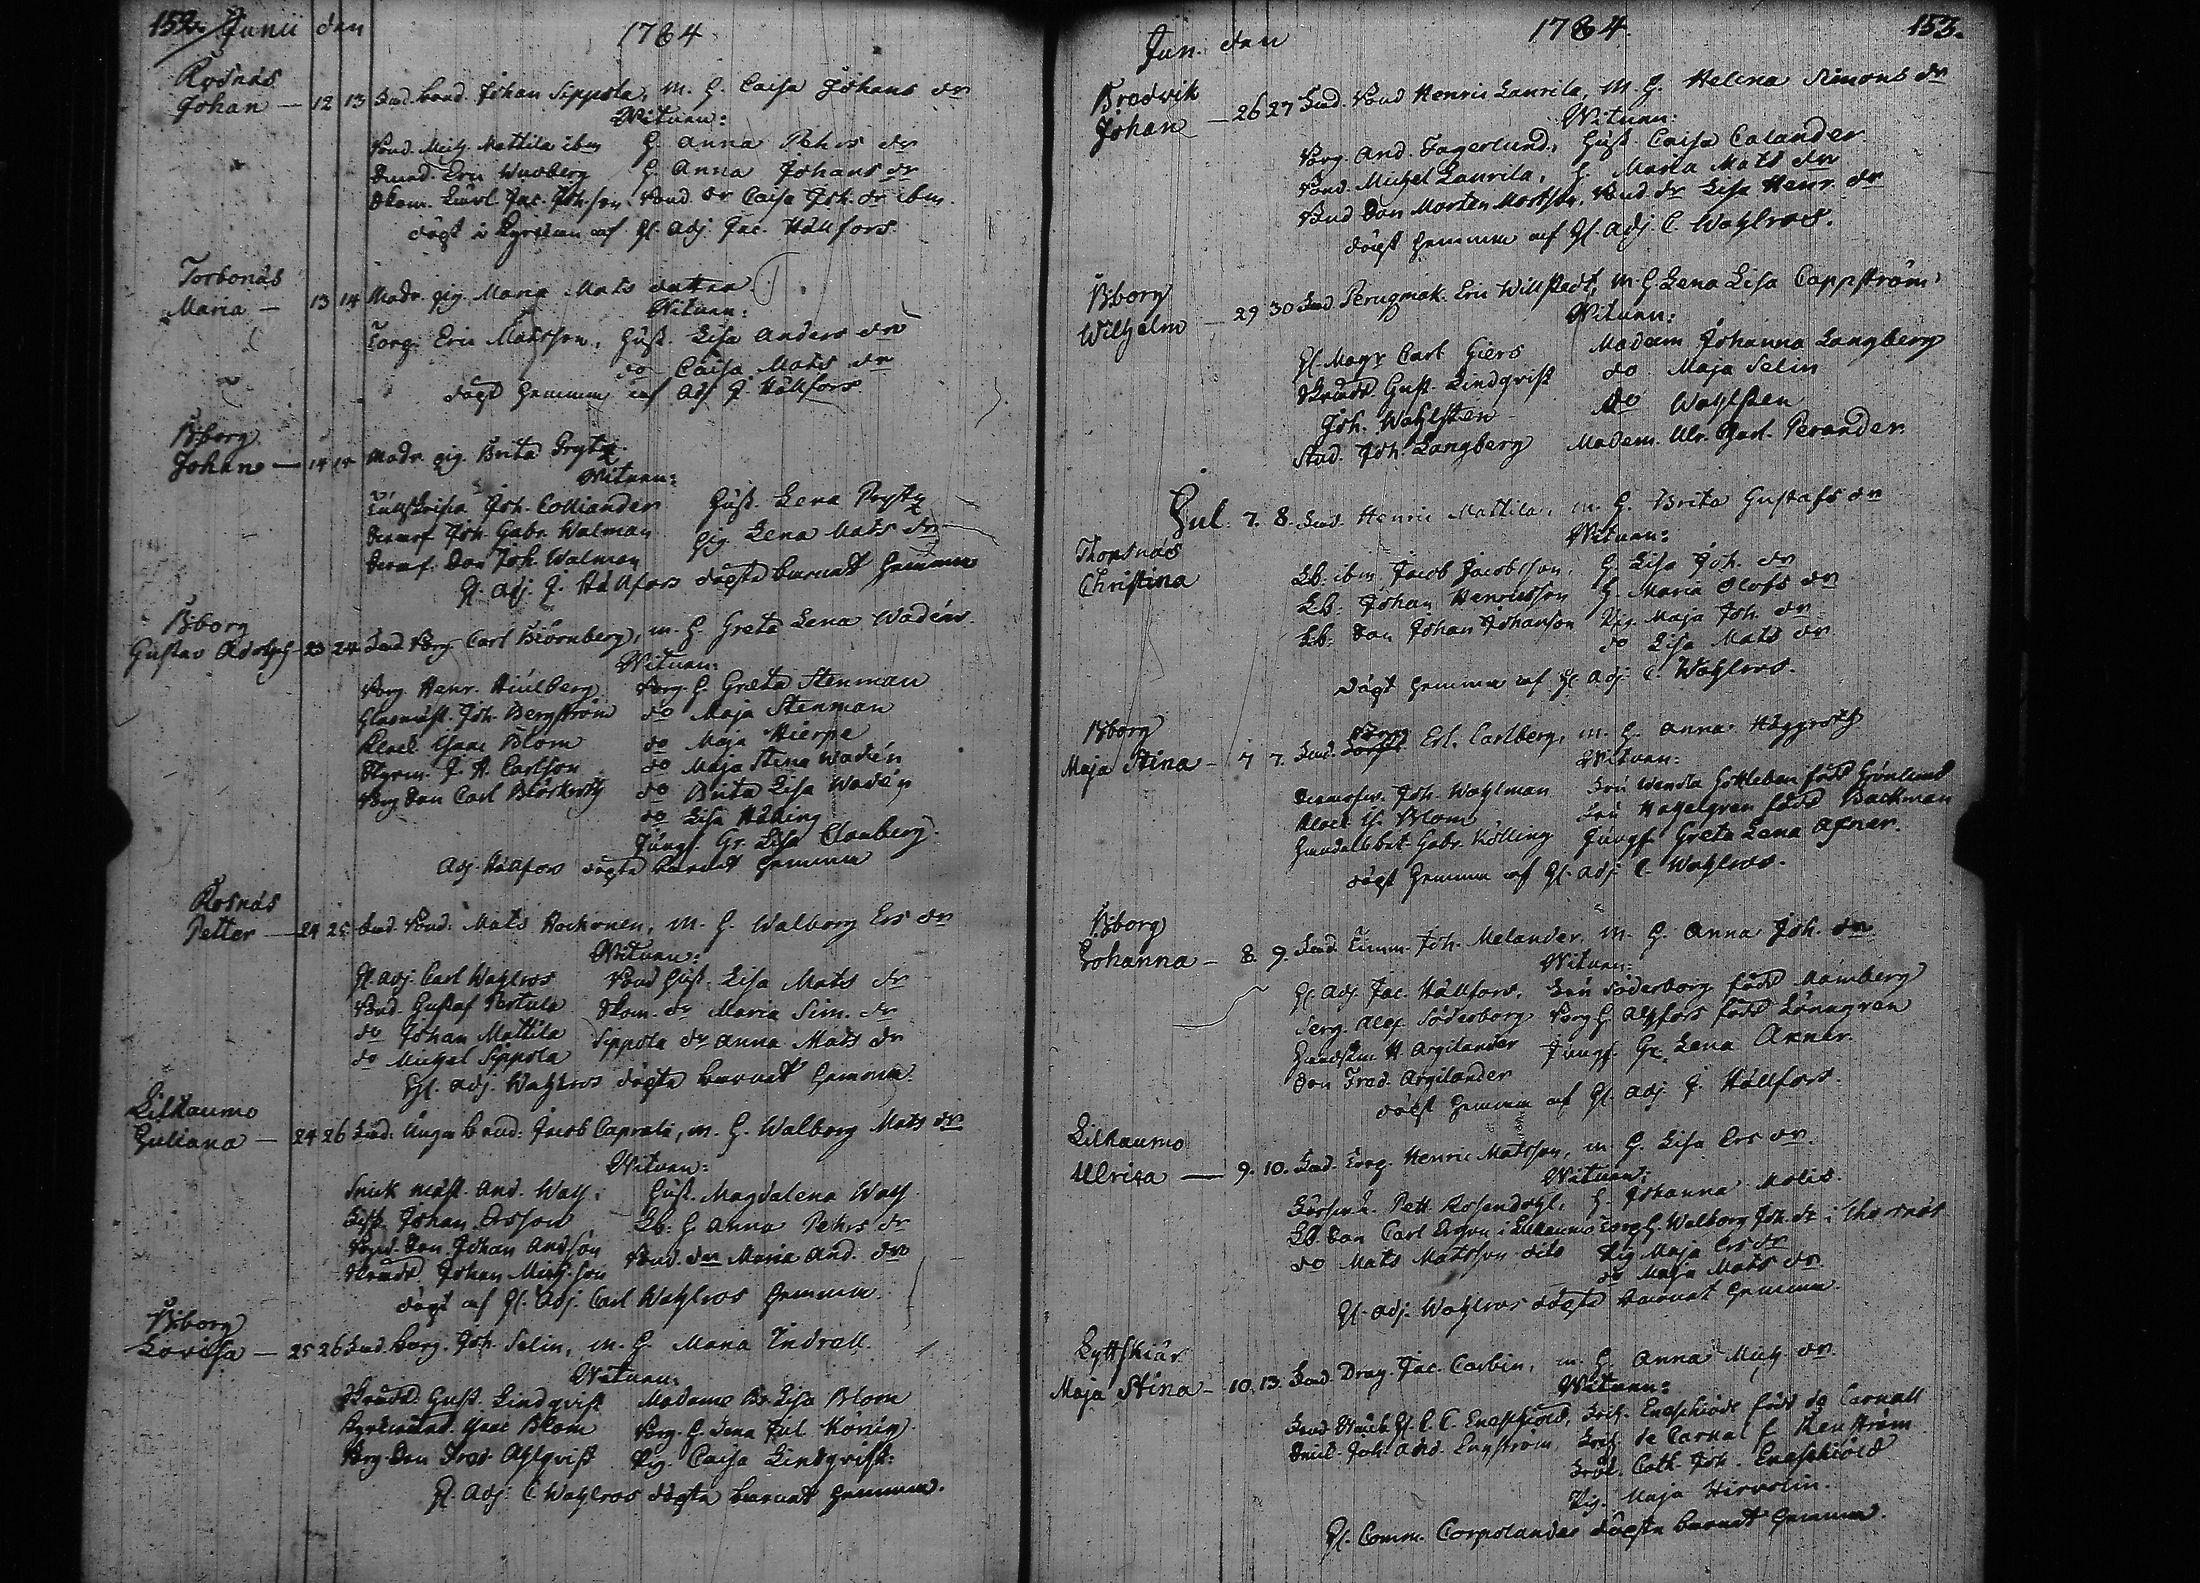 152. Junii den 1764
Rosnäs
Johan — 12 13 bond. Johan Sippola, m. H. Caisa Johans dr
Witnen:
Bond. Mich. Mattila ibm H. Anna Pehrs dr
Eric Windberg H. Anna Johans dr
Jac. Joh.son Bond dr Caisa Joh. dr ibm
döpt i Kyrckan af H. Adj. Jac. Hällfors.
Torbonäs
Maria — 13 14 Modr. pig. Maria Mats dotter
Witnen:
Torp. Eric Matsson, Hust. Lisa Anders dr
do Caisa Mats dr
döpt hemma af Adj. J. Hällfors.
Bborg
Johan — 14 15 Modr. pig. Brita Prytz
Witnen:
Joh. Colliander Hust. Lena Prytz
Joh. Gabr. Walman Pig. Lena Mats dr
Son Joh. Walman
H. Adj. J. Hällfors döpte barnet hemma
Bborg
Gustav Adolph 23 24 Borg. Carl Biörnberg, m. H. Greta Lena Wadén.
Witnen:
Borg. Henr. Hiulberg Borg. H. Greta Stenman
Glasmäst. Joh. Bergström do Maja Stenman
Klock. Isaac Blom do Maja Hierpe
Styrm. J. H. Carlson do Maja Stina Wadén
Borg Son Carl Björkroth do Brita Lisa Wadén
do Lisa
Jungf. Gr. Lisa Clauberg
Adj. Hällfors döpte barnet hemma
Rosnäs
Petter — 24 25 Bond. Mats Kockonen, m. H. Walborg Ers dr
Witnen:
H. Adj. Carl Wahlros Bond Hust. Lisa Mats dr
Bond. Gustaf Pertula Skom. dr Maria Sim. dr
do Johan Mattila Sippola dr Anna Mats dr
do Michel Sippola
H. Adj. Wahlros döpte barnet hemma.
Lilkaumo
Juliana — 24 26 bond. Jacob Caprali, m. H. Walborg Mats dr
Witnen:
Snick mäst. And. Wass. Hust. Magdalena Wass
Johan Ersson Lb. H. Anna Pehrs dr
Bond. Son Johan Andson Bond. dr Maria And. dr
Johan Mich.son
döpt af H. Adj. Carl Wahlros hemma
Bborg
Lovisa — 25 26 borg. Joh. Selin, m. H. Maria Indrell
Witnen:
Gust. Lindqvist Madame Br. Lisa Blom
Isac Blom Borg. H. Lena Jul. König
Borg. Son Fred. Ahlqvist Pig. Caisa Lindqvist.
H. Adj. C Wahlros döpte barnet hemma.
Jun. den 1764. 153.
Brodvik
Johan — 26 27 Bond Henric Laurila, m. H. Helena Simons dr
Witnen:
Borg. And. Fagerlund, Hust Caisa Calander
Bond. Michel Laurila, H. Maria Mats dr
Bond Son Morten Mortson, Bond dr Lisa Henr. dr
döpt hemma af H. Adj. C. Wahlros.
Bborg
Wilhelm — 29 30 Perugmak. Eric Willstedt, m H Lena Lisa Cappström.
Witnen:
H. Mag. Carl Giers Madam Johanna Langberg
Gust. Lindqvist do Maja Selin
Joh. Wahlsten do Wahlsten
Stud. Joh. Langberg Madem. Ulr. Perander
Jul. 7. 8. Henric Mattila, m. H. Brita Gustafs dr
Witnen:
Thorsnäs
Christina
Lb. ibm Jacob Jacobsson, H. Lisa Joh. dr
Lb. Johan Henricsson H. Maria Olofs dr
Lb. Son Johan Johanson Pig. Maja Joh. dr
do Lisa Mats dr
döpt hemma af H. Adj. C. Wahlros.
Bborg
Maja Stina — 7 7. Er. Carlberg, m. H. Anna Häggroth
Witnen:
Joh. Wahlman Fru Wendla Gottleben född Grönlund
Klock Is. Blom Fru Hagelgren född Backman
Gabr. Kölling Jungf Greta Lena Afner.
döpt hemma af H. Adj. C. Wahlros.
Bborg
Johanna — 8. 9. Timm. Joh. Melander, m. H. Anna Joh. dr
Witnen:
H. Adj. Jac. Hällfors, Fru Söderborg född Malmberg
Serg. Alex. Söderborg Borg H. Alfors född Lönngren
H. Argilander Jungf. Gr. Lena Arner.
Son Fred. Argilander
döpt hemma af H. Adj. J. Hällfors.
Lilkaumo
Ulrica — 9. 10. Torp. Henric Matsson, m. H. Lisa Ers dr.
Witnen:
Pett. Rosendahl, H. Johanna Molis.
Lb. Son Carl Ersson i Lilkaumo Torp H. Walborg Joh. dr i Thorsnäs
do Mats Matsson dito Pig Maja Ers dr
do Maja Mats dr
H. Adj. Wahlros döpte barnet hemma
Lyttskiär
Maja Stina — 10. 13. Drag. Jac. Corbin, m. H. Anna Mich. dr.
Witnen:
H. C. C. Eneschiöld, Eneschiöld född de Carnall
Joh. And. Engström, de Carnal f. Renström
Fröl. Cath. Joh. Eneschiöld
Pig. Maja Hirvolin.
H. Comm. Corpolander döpte barnet hemma.